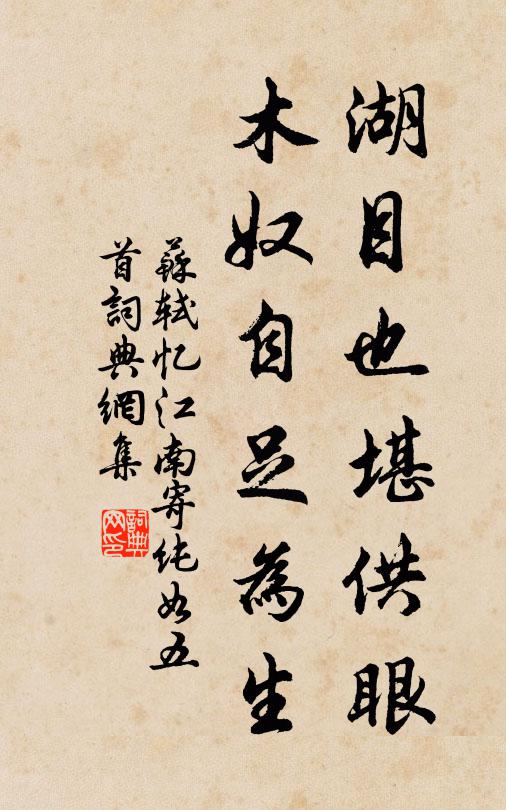 湖目也堪供眼
木奴自足為生
蘇軾忆江南寄纯如五
首詞典網集
詞典
网印